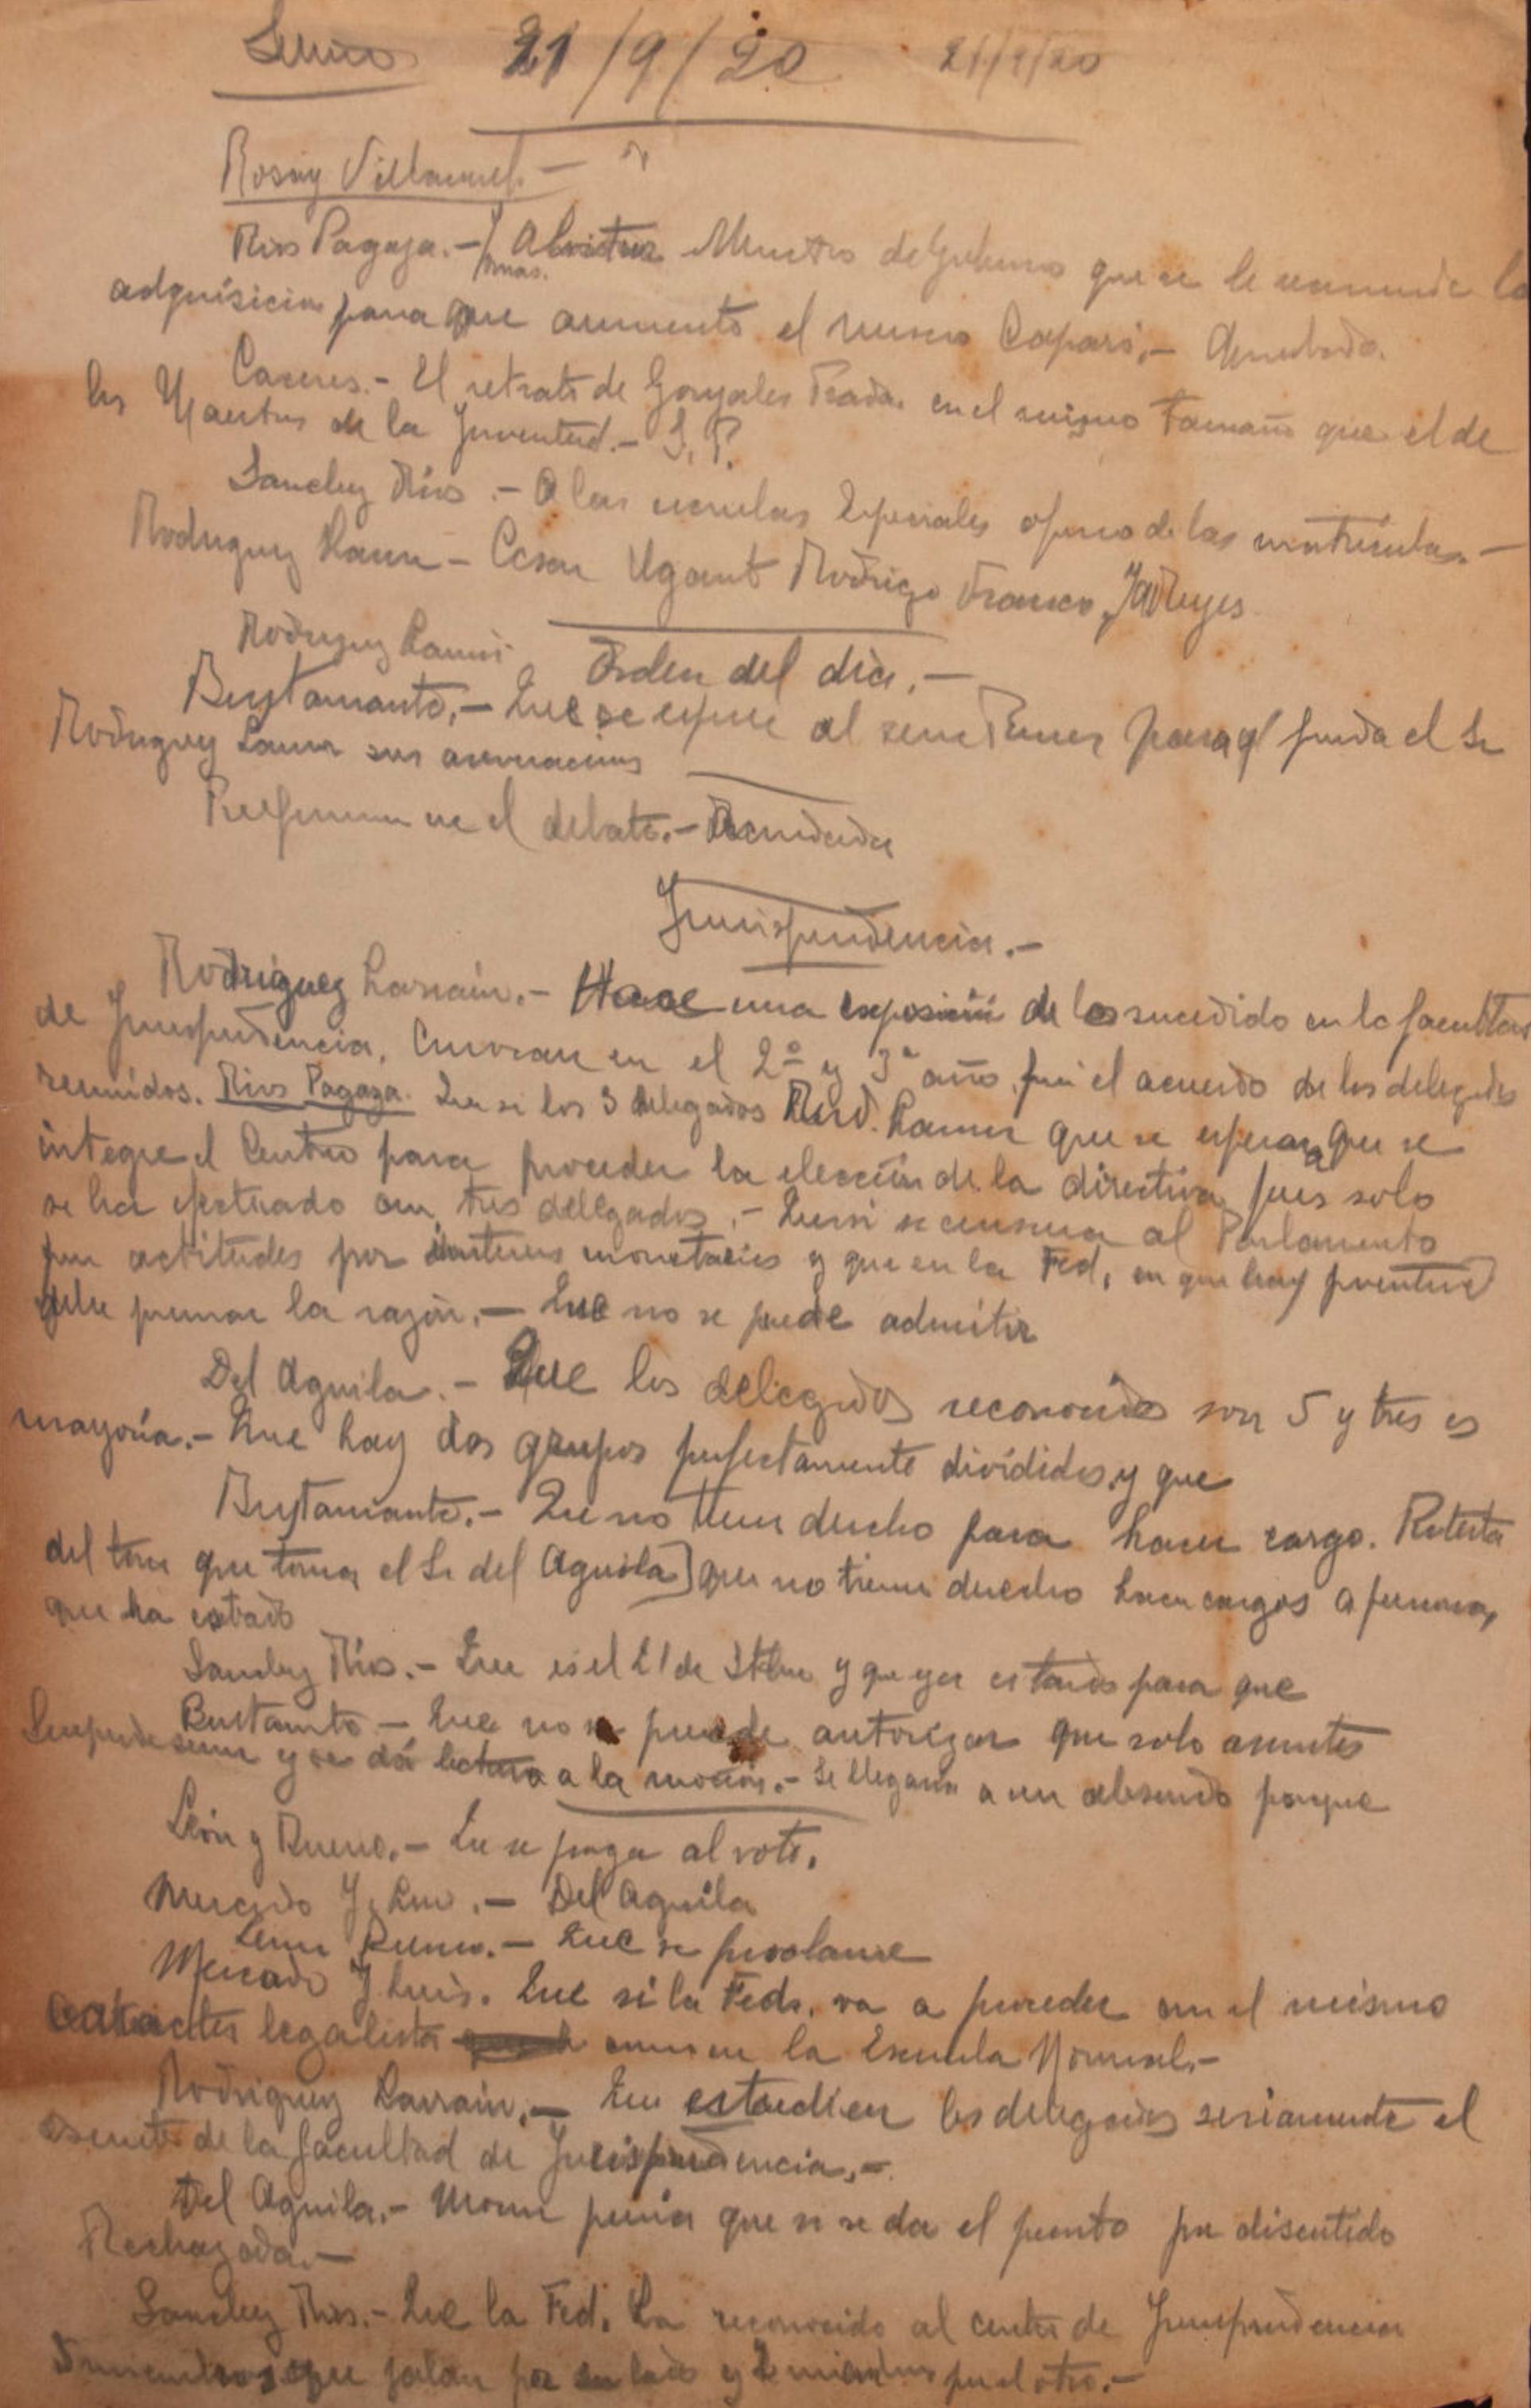 21/9/20 21/9/20
Rosay Villanuel.—
Rios Pagaza.— Ministro de Gobierno que se le recomiende la
mas.
adquisicion para que aumente el museo Caparó.—
Caceres.— El retrato de Gonzales Prada en el mismo tamaño que el de
los Maestros de la Juventud.— S. P.
Sanchez Rios.— A las escuelas Especiales de las matriculas.—
Rodriguez Larrain — Cesar Ugarte Rodrigo Franco, J Reyes
Rodriguez Larrain
Orden del dia.—
Bustamante.— Que se espere al señor para q' funda el Sr
Rodriguez Larrain sus aseveraciones
el debate.—
Jurisprudencia.—
Rodriguez Larrain.— Hace una exposición de lo sucedido en la facultad
de Jurisprudencia, en el 2º y 3er año, fue el acuerdo de los delegados
reunidos. Rios Pagaza. Que si los 3 delegados Rod. Larrain que se esperara que se
integre el Centro para proceder la elección de la directiva pues solo
se ha efectuado con tres delegados.— Que si se censura al Parlamento
por actitudes por monetarios y que en la Fed, en que hay juventud
debe primar la razón.— Que no se puede admitir
Del Aguila.— Que los delegados reconocidos son 5 y tres es
mayoría.— Que hay dos grupos perfectamente divididos y que
Bustamante.— Que no tiene derecho para hacer cargo. Protesta
del tono que toma el Sr del Aguila] que no tiene derecho hacer cargos a persona,
que ha estado
Sanchez Rios.— Que es el 21 de Stbre y que ya es tarde para que
Bustamte — Que no se puede autorizar que solo asuntos
y se dá lectura a la moción.— Se llegaria a un absurdo porque
León y Bueno.— Que se ponga al voto.
Mercado J. Luis.— Del Aguila
Leon Bueno.— Que se proclame
Mercado J Luis. Que si la Feds. va a proceder con el mismo
caracter legalista como en la Escuela Normal.—
Rodriguez Larrain.— Que estudien los delegados seriamente el
asunto de la facultad de Jurisprudencia.—
Del Aguila.— Mocion previa que si se da el punto por discutido
Rechazada.—
Sanchez Rios.— Que la Fed. ha reconocido al centro de Jurisprudencia
5 miembros que jalan por su lado y 2 miembros por el otro.—